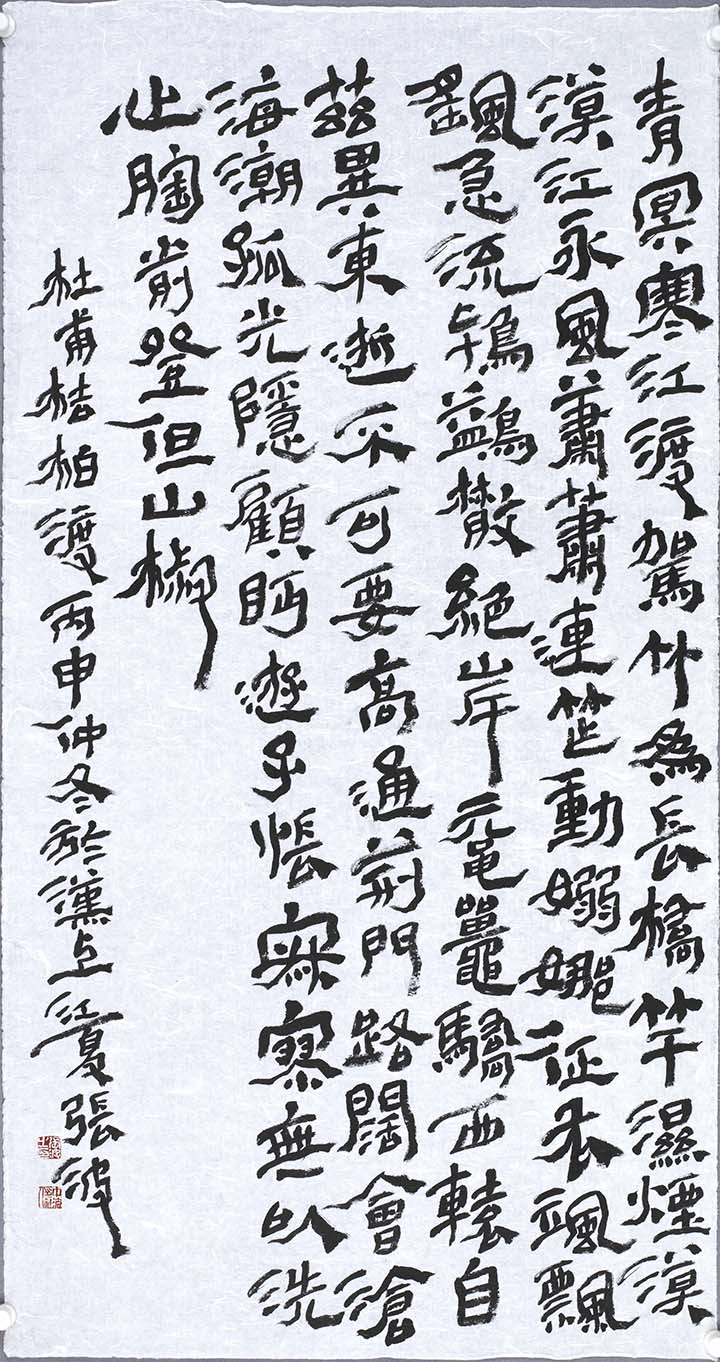 青冥寒江渡駕竹為長橋竿濕煙漠
漠江永風蕭蕭連笮動嫋娜征衣颯飄
颻急流鴇鷁散絕岸黿鼉驕西轅自
茲異東逝不可要高通荊門路闊會滄
海潮孤光隱顧眄遊子悵寂寥無以洗
心胸前登但山椒
杜甫桔柏渡丙申仲冬於漢上江夏張波